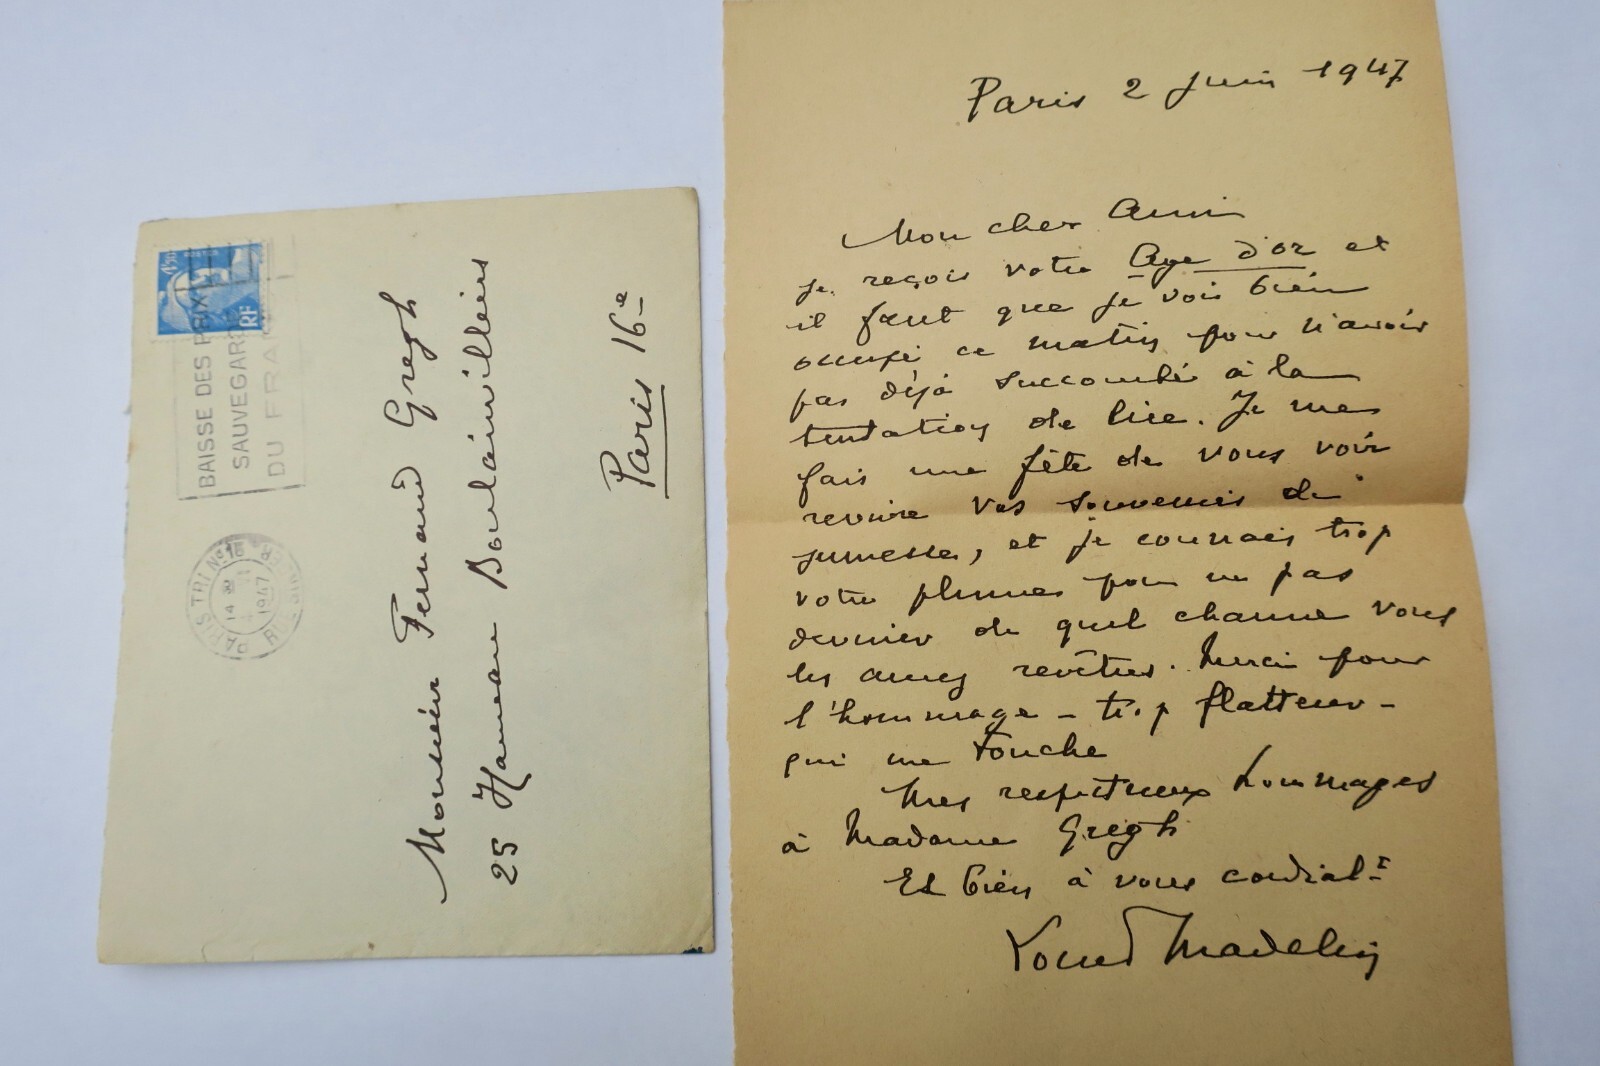 4F50
POSTES
RF
BAISSE DES PRIX
SAUVEGARDE
DU FRANC
PARIS TRI Nº 16
14 H
1947
Monsieur Fernand Gregh
25 Hameau Boulainvilliers
Paris 16e
Paris 2 Juin 1947
Mon cher Ami
Je reçois votre Age d'or et
il faut que je sois bien
occupé ce matin pour n'avoir
pas déjà succombé à la
tentation de lire. Je me
fais une fête de vous voir
revivre vos souvenirs de
jeunesse, et je connais trop
votre plume pour ne pas
deviner de quel charme vous
les aurez revêtus. Merci pour
l'hommage - trop flatteur -
qui me touche
Mes respectueux hommages
à Madame Gregh
Et bien à vous cordialt
Louis Madelin